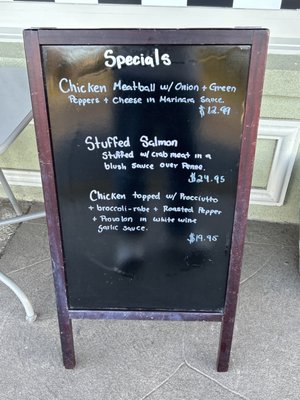 Specials
Chicken Meatball w/ Onion + Green
Peppers + Cheese in Marinara Sauce.
$12.99
Stuffed Salmon
Stuffed w/ crab meat in a
blush sauce over Penne.
$24.95
Chicken topped w/ Procciutto
+ broccoli-rabe + Roasted Pepper
+ Provolon in white wine
garlic sauce.
$19.95